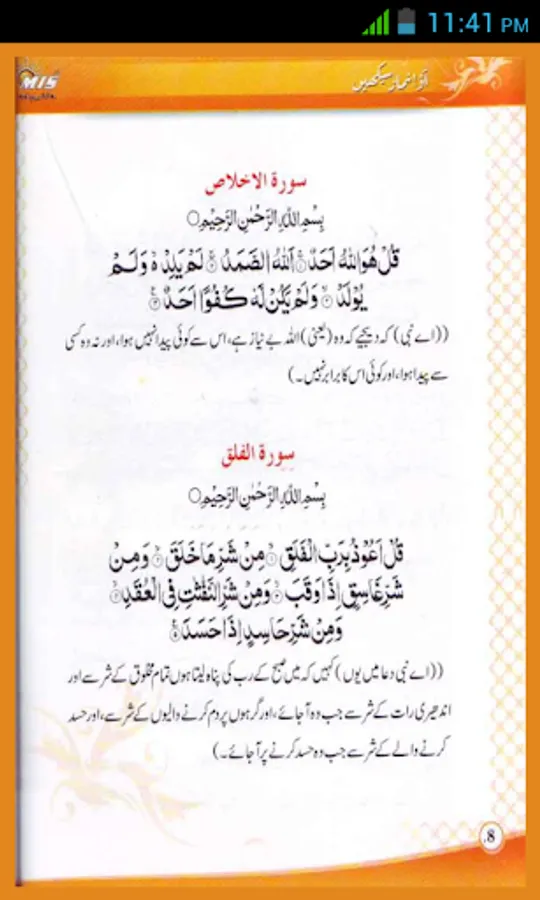 11:41 PM
MIS
آؤ نماز سیکھیں
سورة الاخلاص
بِسْمِ اللّٰهِ الرَّحْمٰنِ الرَّحِيْمِ○
قُلْ هُوَ اللّٰهُ اَحَدٌ ۚ اَللّٰهُ الصَّمَدُ ۚ لَمْ يَلِدْ ۙ وَلَمْ
يُوْلَدْ ۙ وَلَمْ يَكُنْ لَّهٗ كُفُوًا اَحَدٌ
((اے نبی) کہہ دیجیے کہ وہ (یعنی) اللہ بے نیاز ہے، اس سے کوئی پیدا نہیں ہوا، اور نہ وہ کسی
سے پیدا ہوا، اور کوئی اس کا برابر نہیں۔)
سورة الفلق
بِسْمِ اللّٰهِ الرَّحْمٰنِ الرَّحِيْمِ○
قُلْ اَعُوْذُ بِرَبِّ الْفَلَقِ ۙ مِنْ شَرِّ مَا خَلَقَ ۙ وَمِنْ
شَرِّ غَاسِقٍ اِذَا وَقَبَ ۙ وَمِنْ شَرِّ النَّفّٰثٰتِ فِی الْعُقَدِ ۙ
وَمِنْ شَرِّ حَاسِدٍ اِذَا حَسَدَ
((اے نبی دعا میں یوں) کہیں کہ میں صبح کے رب کی پناہ لیتا ہوں تمام مخلوق کے شر سے اور
اندھیری رات کے شر سے جب وہ آ جائے، اور گرہوں پر دم کرنے والیوں کے شر سے، اور حسد
کرنے والے کے شر سے جب وہ حسد کرنے پر آ جائے۔)
8.